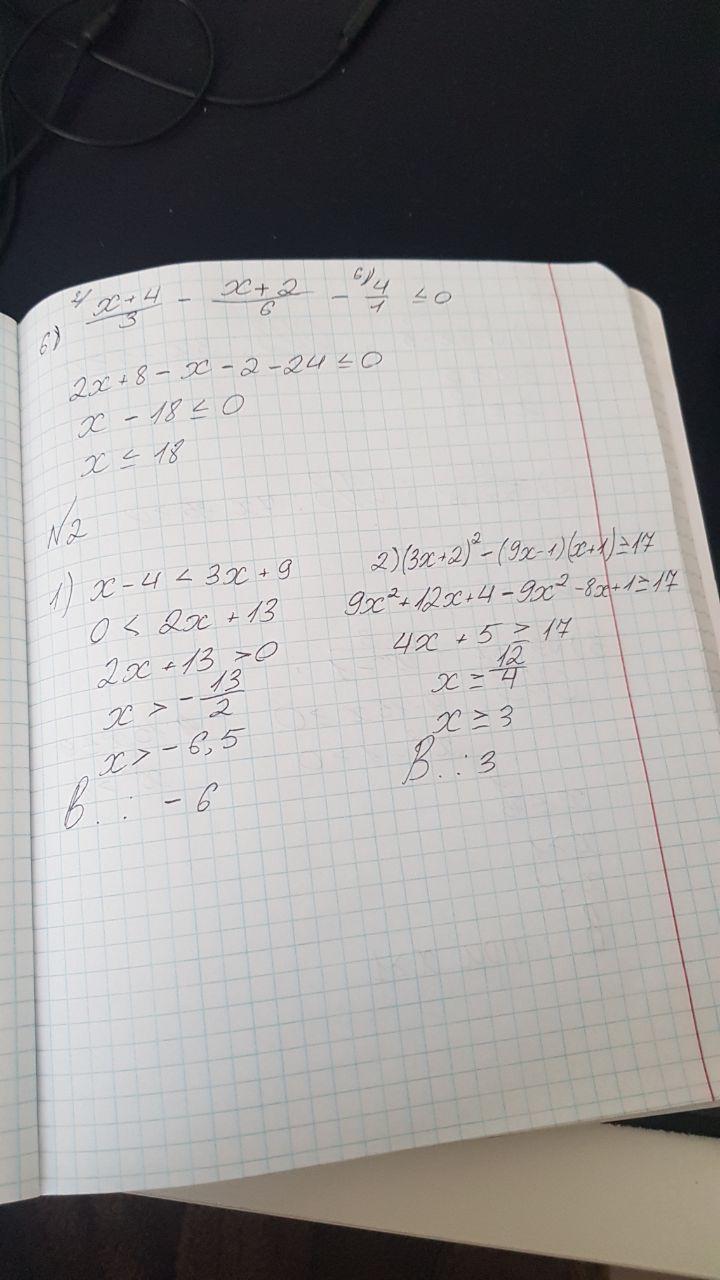 6) ²⁾ (x+4)/3 - (x+2)/6 - ⁶⁾ 4/1 ≤ 0
2x+8-x-2-24≤0
x - 18 ≤ 0
x ≤ 18
№2
1) x-4 < 3x+9
0 < 2x + 13
2x+13 >0
x > - 13/2
x > - 6,5
В.: - 6
2) (3x+2)² - (9x-1)(x+1) ≥ 17
9x²+12x+4-9x²-8x+1≥17
4x + 5 ≥ 17
x ≥ 12/4
x ≥ 3
В.: 3